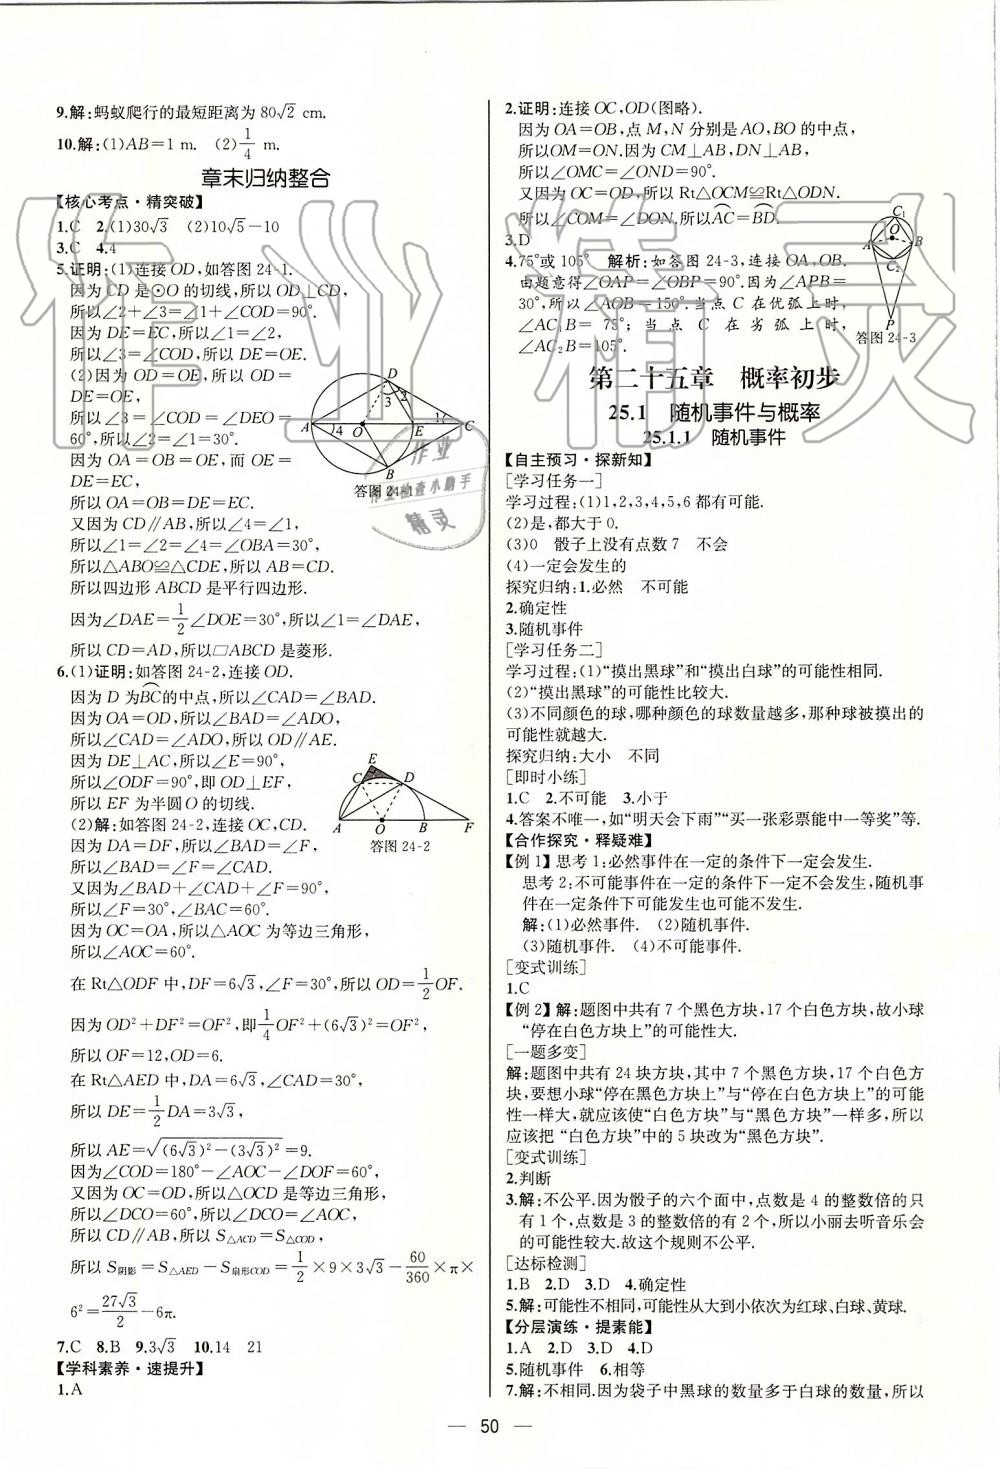 9.解:蚂蚁爬行的最短距离为80√2 cm.
10.解:(1)AB=1 m. (2)1/4 m.
章末归纳整合
【核心考点·精突破】
1.C 2.(1)30√3 (2)10√5-10
3.C 4.4
5.证明:(1)连接OD,如答图24-1.
因为CD是⊙O的切线,所以OD⊥CD,
所以∠2+∠3=∠1+∠COD=90°.
因为DE=EC,所以∠1=∠2,
所以∠3=∠COD,所以DE=OE.
(2)因为OD=OE,所以OD=
DE=OE,
所以∠3=∠COD=∠DEO=
60°,所以∠2=∠1=30°.
因为OA=OB=OE,而OE=
DE=EC,
所以OA=OB=DE=EC.
又因为CD∥AB,所以∠4=∠1,
所以∠1=∠2=∠4=∠OBA=30°,
所以△ABO≌△CDE,所以AB=CD.
所以四边形ABCD是平行四边形.
因为∠DAE=1/2∠DOE=30°,所以∠1=∠DAE,
所以CD=AD,所以□ABCD是菱形.
A O E C D B 1 2 3 4
答图24-1
6.(1)证明:如答图24-2,连接OD.
因为D为BC的中点,所以∠CAD=∠BAD.
因为OA=OD,所以∠BAD=∠ADO,
所以∠CAD=∠ADO,所以OD∥AE.
因为DE⊥AC,所以∠E=90°,
所以∠ODF=90°,即OD⊥EF,
所以EF为半圆O的切线.
(2)解:如答图24-2,连接OC,CD.
因为DA=DF,所以∠BAD=∠F,
所以∠BAD=∠F=∠CAD.
又因为∠BAD+∠CAD+∠F=90°,
所以∠F=30°,∠BAC=60°.
因为OC=OA,所以△AOC为等边三角形,
所以∠AOC=60°.
E C D A O B F
答图24-2
在Rt△ODF中,DF=6√3,∠F=30°,所以OD=1/2OF.
因为OD²+DF²=OF²,即1/4OF²+(6√3)²=OF²,
所以OF=12,OD=6.
在Rt△AED中,DA=6√3,∠CAD=30°,
所以DE=1/2DA=3√3,
所以AE=√((6√3)²-(3√3)²)=9.
因为∠COD=180°-∠AOC-∠DOF=60°,
又因为OC=OD,所以△OCD是等边三角形,
所以∠DCO=60°,所以∠DCO=∠AOC,
所以CD∥AB,所以S△ACD=S△COD,
所以S阴影=S△AED-S扇形COD=1/2×9×3√3-60/360×π×
6²=27√3/2-6π.
7.C 8.B 9.3√3 10.14 21
【学科素养·速提升】
1.A
2.证明:连接OC,OD(图略).
因为OA=OB,点M,N分别是AO,BO的中点,
所以OM=ON.因为CM⊥AB,DN⊥AB,
所以∠OMC=∠OND=90°.
又因为OC=OD,所以Rt△OCM≌Rt△ODN.
所以∠COM=∠DON,所以AC=BD.
3.D
4.75°或105° 解析:如答图24-3,连接OA,OB.
由题意得∠OAP=∠OBP=90°.因为∠APB=
30°,所以∠AOB=150°.当点C在优弧上时,
∠AC₁B=75°;当点C在劣弧上时,
∠AC₂B=105°.
C₁ O A B C₂ P
答图24-3
第二十五章 概率初步
25.1 随机事件与概率
25.1.1 随机事件
【自主预习·探新知】
[学习任务一]
学习过程:(1)1,2,3,4,5,6都有可能.
(2)是,都大于0.
(3)0 骰子上没有点数7 不会
(4)一定会发生的
探究归纳:1.必然 不可能
2.确定性
3.随机事件
[学习任务二]
学习过程:(1)“摸出黑球”和“摸出白球”的可能性相同.
(2)“摸出黑球”的可能性比较大.
(3)不同颜色的球,哪种颜色的球数量越多,那种球被摸出的
可能性就越大.
探究归纳:大小 不同
[即时小练]
1.C 2.不可能 3.小于
4.答案不唯一,如“明天会下雨”“买一张彩票能中一等奖”等.
【合作探究·释疑难】
【例1】思考1:必然事件在一定的条件下一定会发生.
思考2:不可能事件在一定的条件下一定不会发生,随机事
件在一定条件下可能发生也可能不发生.
解:(1)必然事件. (2)随机事件.
(3)随机事件. (4)不可能事件.
[变式训练]
1.C
【例2】解:题图中共有7个黑色方块,17个白色方块,故小球
“停在白色方块上”的可能性大.
[一题多变]
解:题图中共有24块方块,其中7个黑色方块,17个白色方
块,要想小球“停在黑色方块上”与“停在白色方块上”的可能
性一样大,就应该使“白色方块”与“黑色方块”一样多,所以
应该把“白色方块”中的5块改为“黑色方块”.
[变式训练]
2.判断
3.解:不公平.因为骰子的六个面中,点数是4的整数倍的只
有1个,点数是3的整数倍的有2个,所以小丽去听音乐会
的可能性较大.故这个规则不公平.
[达标检测]
1.B 2.D 3.D 4.确定性
5.解:可能性不相同,可能性从大到小依次为红球、白球、黄球.
【分层演练·提素能】
1.A 2.D 3.D 4.D
5.随机事件 6.相等
7.解:不相同.因为袋子中黑球的数量多于白球的数量,所以
— 50 —
作业精灵
作业
作业检查小助手
精灵